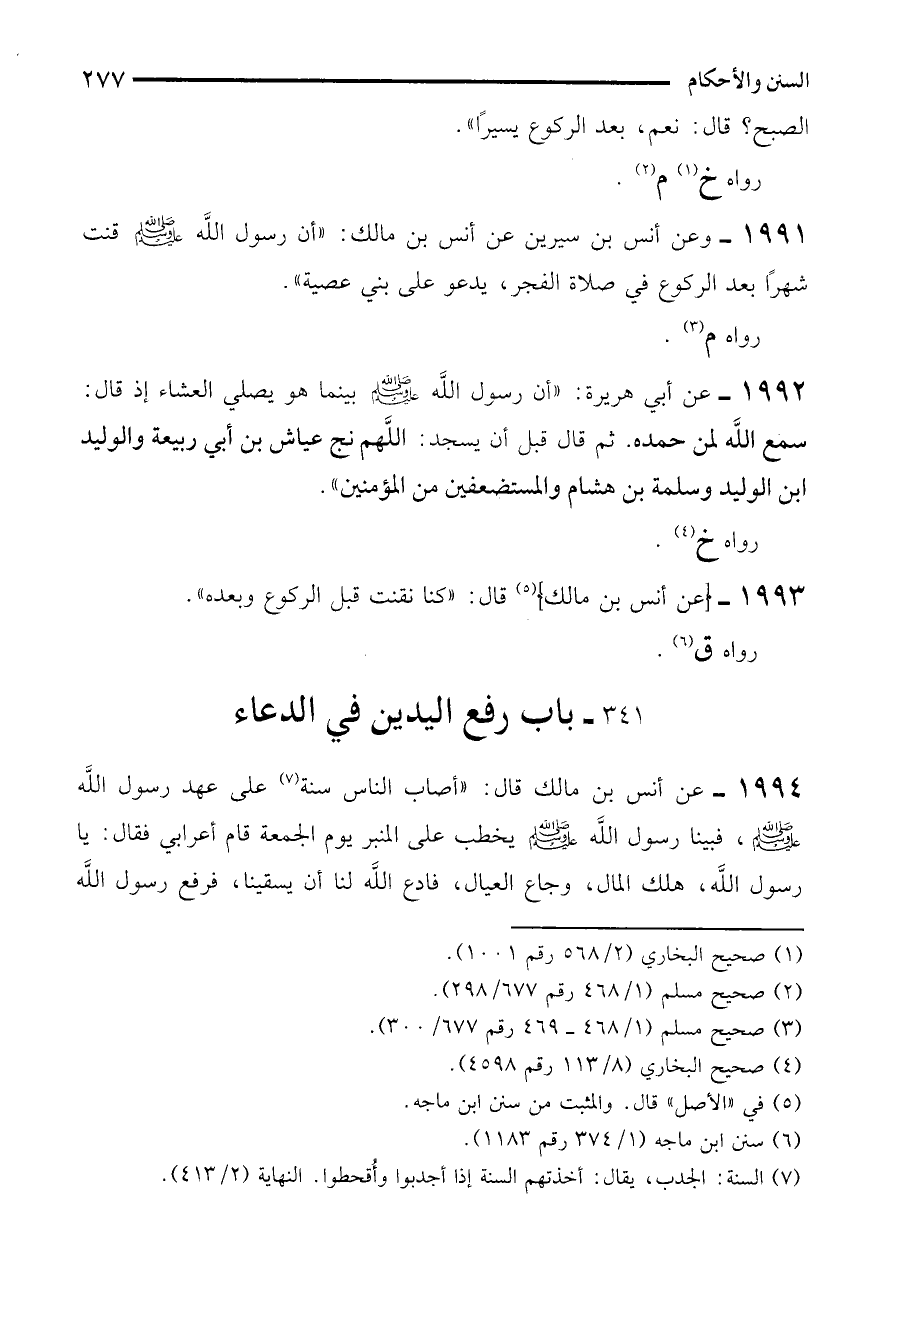 السنن والأحكام ٢٧٧
الصبح؟ قال: نعم، بعد الركوع يسيرًا».
رواه خ(١) م(٢) .
١٩٩١ ـ وعن أنس بن سيرين عن أنس بن مالك: «أن رسول اللَّه ﷺ قنت
شهرًا بعد الركوع في صلاة الفجر، يدعو على بني عصية».
رواه م(٣) .
١٩٩٢ ـ عن أبي هريرة: «أن رسول اللَّه ﷺ بينما هو يصلي العشاء إذ قال:
سمع اللَّه لمن حمده. ثم قال قبل أن يسجد: اللَّهم نج عياش بن أبي ربيعة والوليد
ابن الوليد وسلمة بن هشام والمستضعفين من المؤمنين».
رواه خ(٤) .
١٩٩٣ ـ {عن أنس بن مالك}(٥) قال: «كنا نقنت قبل الركوع وبعده».
رواه ق(٦) .
٣٤١ ـ باب رفع اليدين في الدعاء
١٩٩٤ ـ عن أنس بن مالك قال: «أصاب الناس سنة(٧) على عهد رسول اللَّه
ﷺ ، فبينا رسول اللَّه ﷺ يخطب على المنبر يوم الجمعة قام أعرابي فقال: يا
رسول اللَّه، هلك المال، وجاع العيال، فادع اللَّه لنا أن يسقينا، فرفع رسول اللَّه
(١) صحيح البخاري (٥٦٨/٢ رقم ١٠٠١).
(٢) صحيح مسلم (٤٦٨/١ رقم ٢٩٨/٦٧٧).
(٣) صحيح مسلم (٤٦٨/١ ـ ٤٦٩ رقم ٣٠٠/٦٧٧).
(٤) صحيح البخاري (١١٣/٨ رقم ٤٥٩٨).
(٥) في «الأصل» قال. والمثبت من سنن ابن ماجه.
(٦) سنن ابن ماجه (٣٧٤/١ رقم ١١٨٣).
(٧) السنة: الجدب، يقال: أخذتهم السنة إذا أجدبوا وأُقحطوا. النهاية (٤١٣/٢).